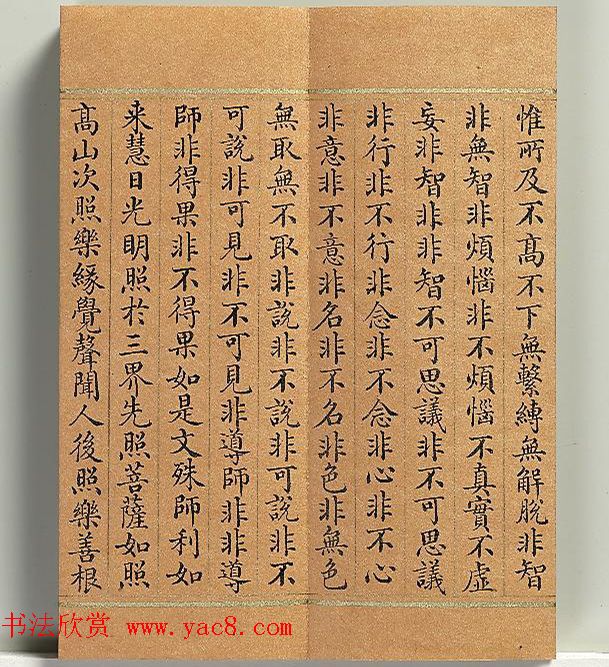 惟所及不髙不下無繫縛無解脫非智
非無智非煩惱非不煩惱不真實不虛
妄非智非非智不可思議非不可思議
非行非不行非念非不念非心非不心
非意非不意非名非不名非色非無色
無取無不取非說非不說非可說非不
可說非可見非不可見非導師非非導
師非得果非不得果如是文殊師利如
来慧日光明照於三界先照菩薩如照
髙山次照樂緣覺聲聞人後照樂善根
书法欣赏 www.yac8.com